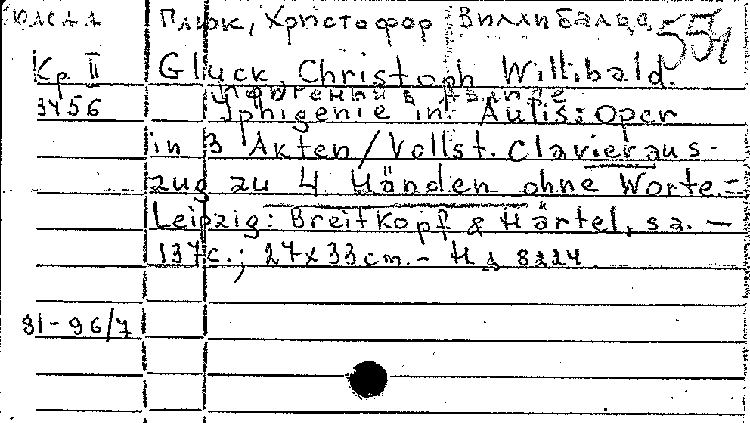 Глюк, Христофор Виллибальд 551
Кр II Gluck, Christoph Willibald.
Ифигения в Авлиде
3456 Iphigenie in Aulis: Oper
in 3 Akten / Vollst. Clavieraus-
zug zu 4 Händen ohne Worte. -
Leipzig: Breitkopf & Härtel, s.a. -
137 с.; 27x33 cm. - Н.д. 8224
31-96/7